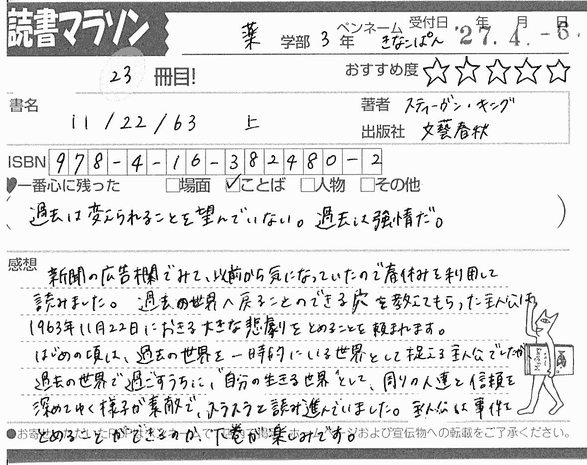 読書マラソン
薬 学部 3 年 ペンネーム きなこぱん 受付日 '27.年4.月-6.日
23 冊目! おすすめ度 ☆☆☆☆☆
書名 11/22/63 上
著者 スティーヴン・キング
出版社 文藝春秋
ISBN 978-4-16-382480-2
♥一番心に残った □場面 ☑ことば □人物 □その他
(過去は変えられることを望んでいない。過去は強情だ。)
感想
新聞の広告欄でみて、以前から気になっていたので春休みを利用して
読みました。過去の世界へ戻ることのできる穴を教えてもらった主人公は
1963年11月22日におきる大きな悲劇をとめることを頼まれます。
はじめの頃は、過去の世界を一時的にいる世界として捉える主人公でしたが
過去の世界で過ごすうちに、"自分の生きる世界"として、周りの人達と信頼を
深めてゆく様子が素敵で、スラスラと読み進んでいました。主人公は事件を
とめることができるのか、下巻が楽しみです。
●お寄せいただいた ペンネームで および宣伝物への転載をご了承ください。